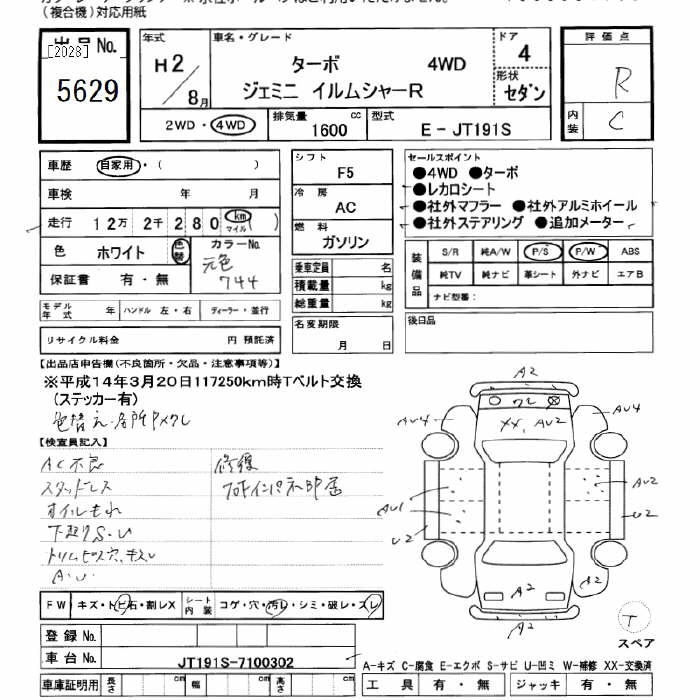 (複合機)対応用紙
出品No. [2028] 5629
年式 H2/8月
車名・グレード ターボ 4WD
ジェミニ イルムシャーR
ドア 4
形状 セダン
評価点 R
内装 C
2WD・4WD 排気量 1600 cc 型式 E-JT191S
車歴 自家用・( )
車検 年 月
走行 12万 2千 280 km マイル ( )
色 ホワイト 色替 カラーNo. 元色 744
保証書 有・無
シフト F5
冷房 AC
燃料 ガソリン
乗車定員 名
積載量 kg
総重量 kg
セールスポイント
●4WD ●ターボ
●レカロシート
●社外マフラー ●社外アルミホイール
●社外ステアリング ●追加メーター
装備品 S/R 純A/W P/S P/W ABS
純TV 純ナビ 革シート 外ナビ エアB
ナビ型番:
モデル年式 年 ハンドル 左・右 ディーラー・並行
名変期限 月 日
後日品
リサイクル料金 円 預託済
【出品店申告欄(不良箇所・欠品・注意事項等)】
※平成14年3月20日117250km時Tベルト交換
(ステッカー有)
【検査員記入】
AC不良 修復
スタッドレス
オイルもれ
下廻りS・U
A2
AU4 ワレ AU4
XX, AU2
AU1 AU2
U2 U2
A2 A2
A2
T
スペア
FW キズ・トビ石・割レX シート内装 コゲ・穴・汚レ・シミ・破レ・スレ
登録No.
車台No. JT191S-7100302
A-キズ C-腐食 E-エクボ S-サビ U-凹ミ W-補修 XX-交換済
車庫証明用 長さ cm 幅 cm 高さ cm
工具 有・無 ジャッキ 有・無